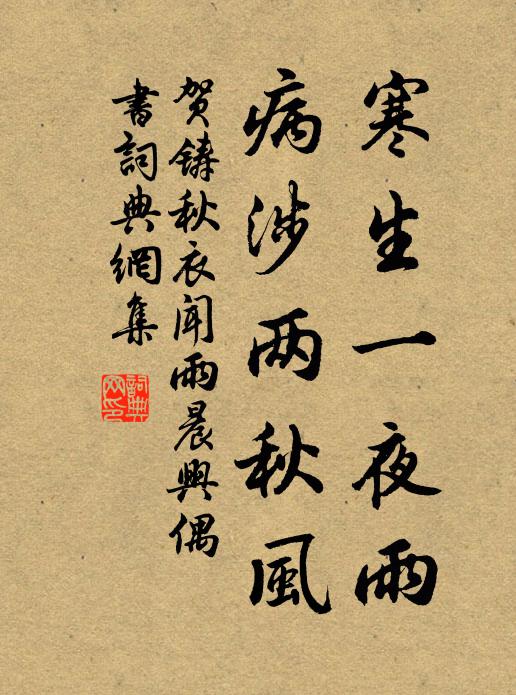 寒生一夜雨
病涉两秋風
贺鑄秋衣闻雨晨興偶
書詞典網集
詞典網印